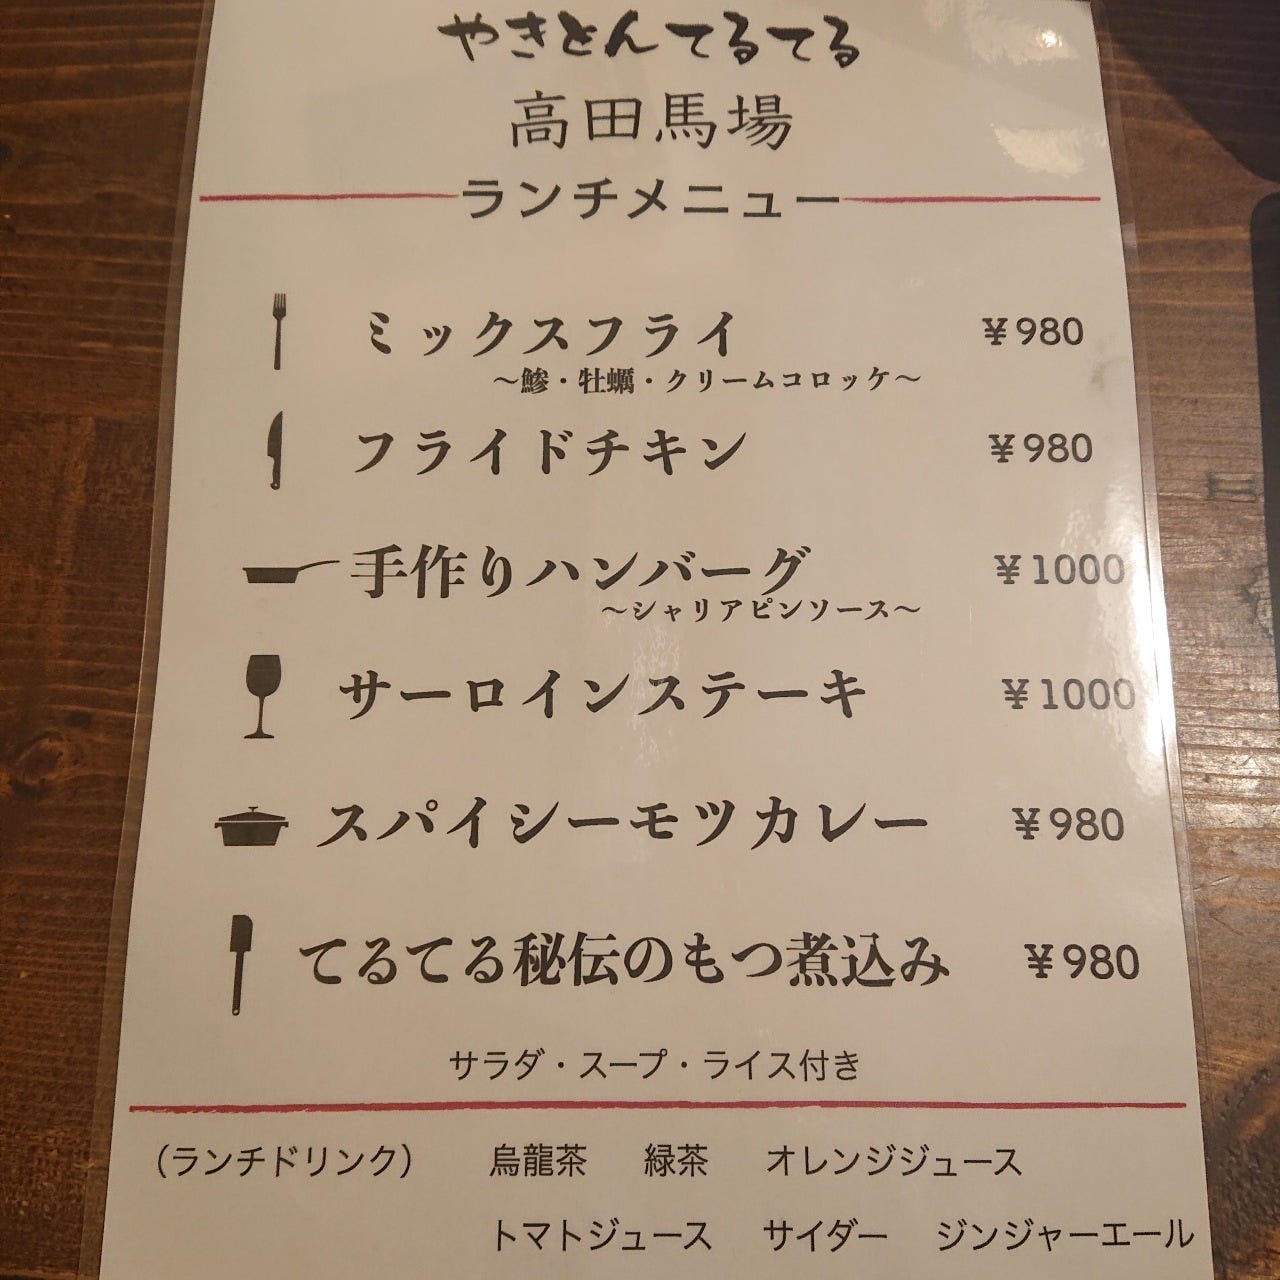 やきとんてるてる
高田馬場
ランチメニュー
ミックスフライ ¥980
～鯵・牡蠣・クリームコロッケ～
フライドチキン ¥980
手作りハンバーグ ¥1000
～シャリアピンソース～
サーロインステーキ ¥1000
スパイシーモツカレー ¥980
てるてる秘伝のもつ煮込み ¥980
サラダ・スープ・ライス付き
（ランチドリンク） 烏龍茶 緑茶 オレンジジュース
トマトジュース サイダー ジンジャーエール